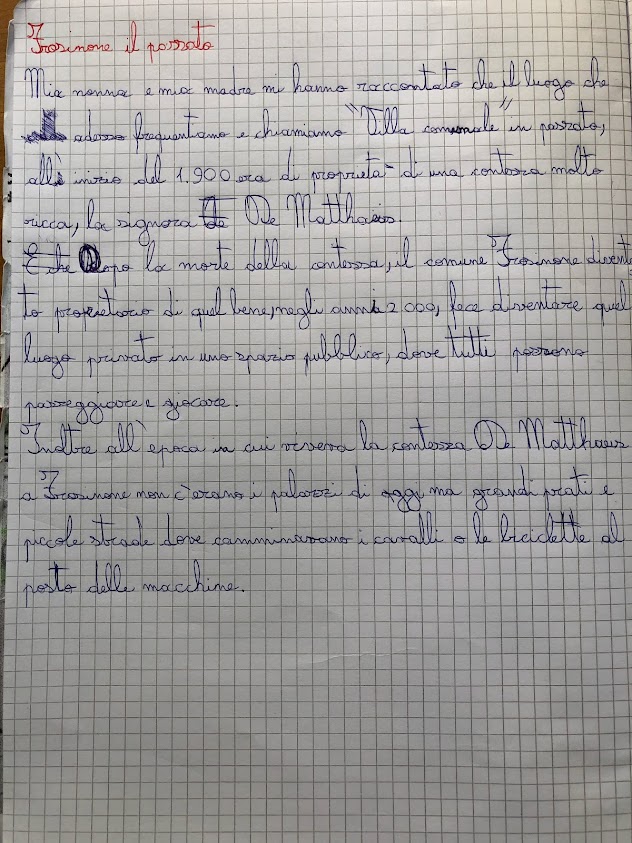 Frosinone il passato
Mia nonna e mia madre mi hanno raccontato che il luogo che
adesso frequentiamo e chiamiamo "Villa comunale" in passato,
all'inizio del 1.900 era di proprietà di una contessa molto
ricca, la signora De Matthaeis.
E che Dopo la morte della contessa, il comune Frosinone diventa
to proprietario di quel bene, negli anni 2000, fece diventare quel
luogo privato in uno spazio pubblico, dove tutti possono
passeggiare e giocare.
Inoltre all'epoca in cui viveva la contessa De Matthaeis
a Frosinone non c'erano i palazzi di oggi ma grandi prati e
piccole strade dove camminavano i cavalli o le biciclette al
posto delle macchine.